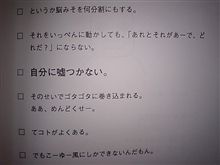 □ というか脳みそを何分割にもする。
□ それをいっぺんに動かしても、「あれとそれがあーで、ど
れだ?」にならない。
□ 自分に嘘つかない。
□ そのせいでゴタゴタに巻き込まれる。
ああ、めんどくせー。
□ てコトがよくある。
□ でもこーゆー風にしかできないんだもん。